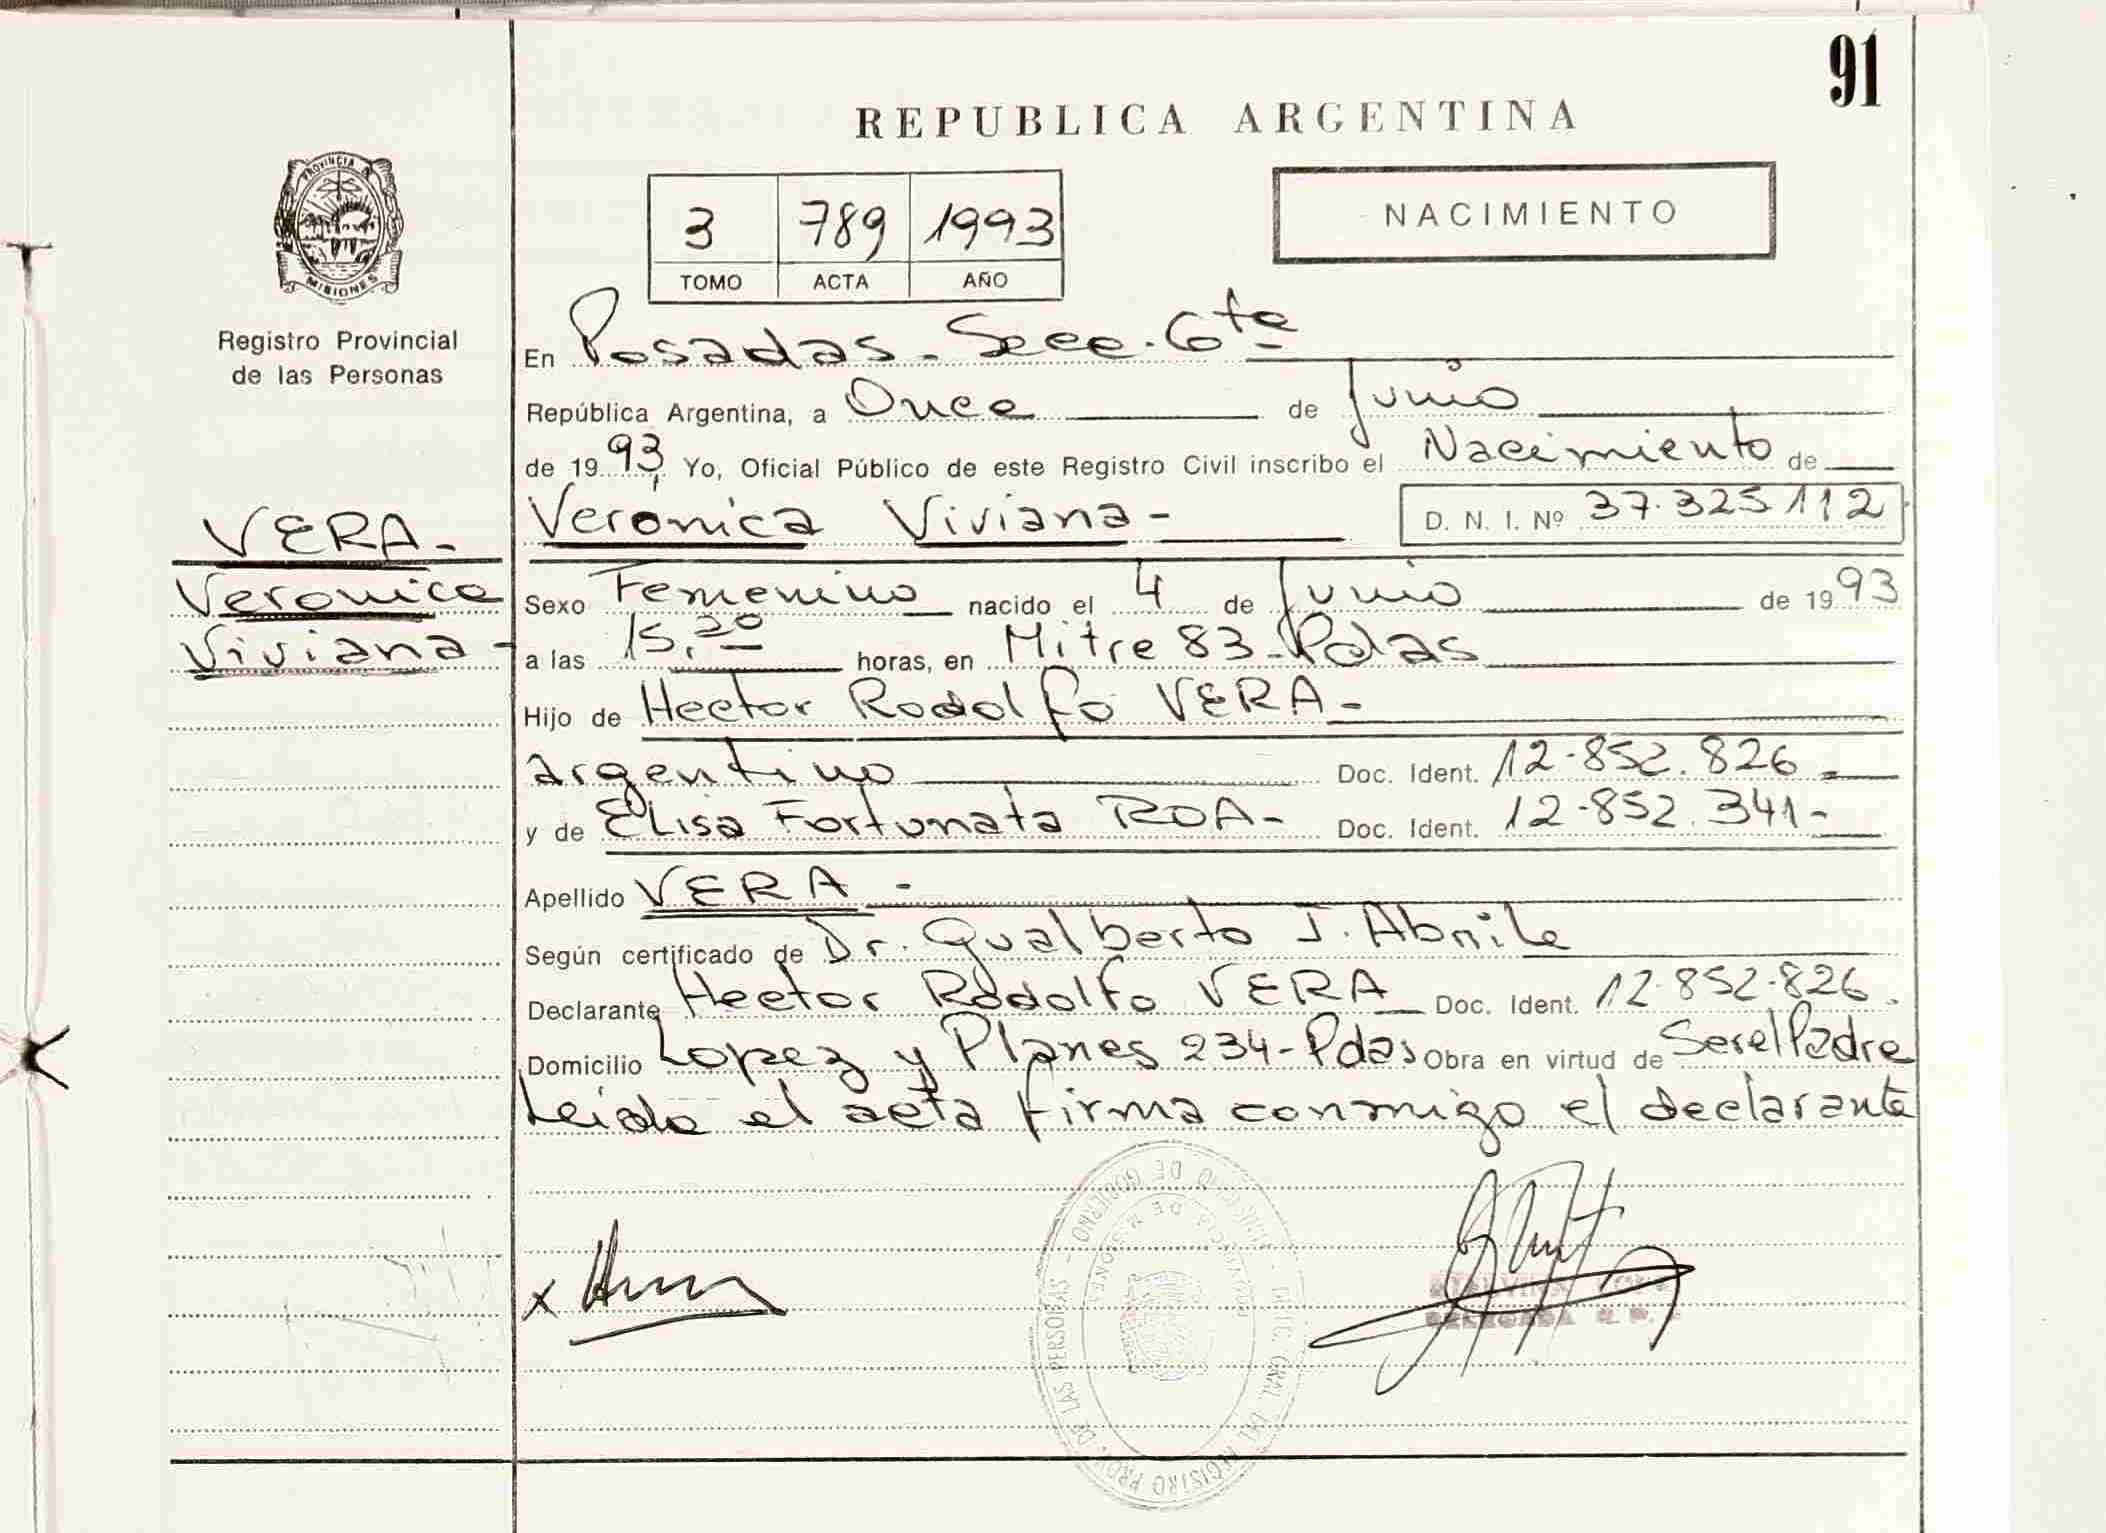 91
REPUBLICA ARGENTINA
PROVINCIA
MISIONES
Registro Provincial
de las Personas
3 789 1993
TOMO ACTA AÑO
NACIMIENTO
En Posadas - Secc. 6ta
República Argentina, a Once de Junio
de 1993, Yo, Oficial Público de este Registro Civil inscribo el Nacimiento de
VERA -
Veronica
Viviana -
Verónica Viviana - D. N. I. Nº 37.325112
Sexo Femenino nacido el 4 de Junio de 1993
a las 15,20 horas, en Mitre 83 - Pdas
Hijo de Hector Rodolfo VERA -
argentino Doc. Ident. 12-852.826 -
y de Elisa Fortunata ROA - Doc. Ident. 12-852.341 -
Apellido VERA -
Según certificado de Dr. Gualberto J.
Declarante Hector Rodolfo VERA Doc. Ident. 12-852-826.
Domicilio Lopez y Planes 234 - Pdas Obra en virtud de Ser el Padre
Leida el acta firma conmigo el declarante
x
DELEGADA R. P.
MINISTERIO DE GOBIERNO - DIR. GRAL. DEL REGISTRO PROV. DE LAS PERSONAS -
PROVINCIA DE MISIONES